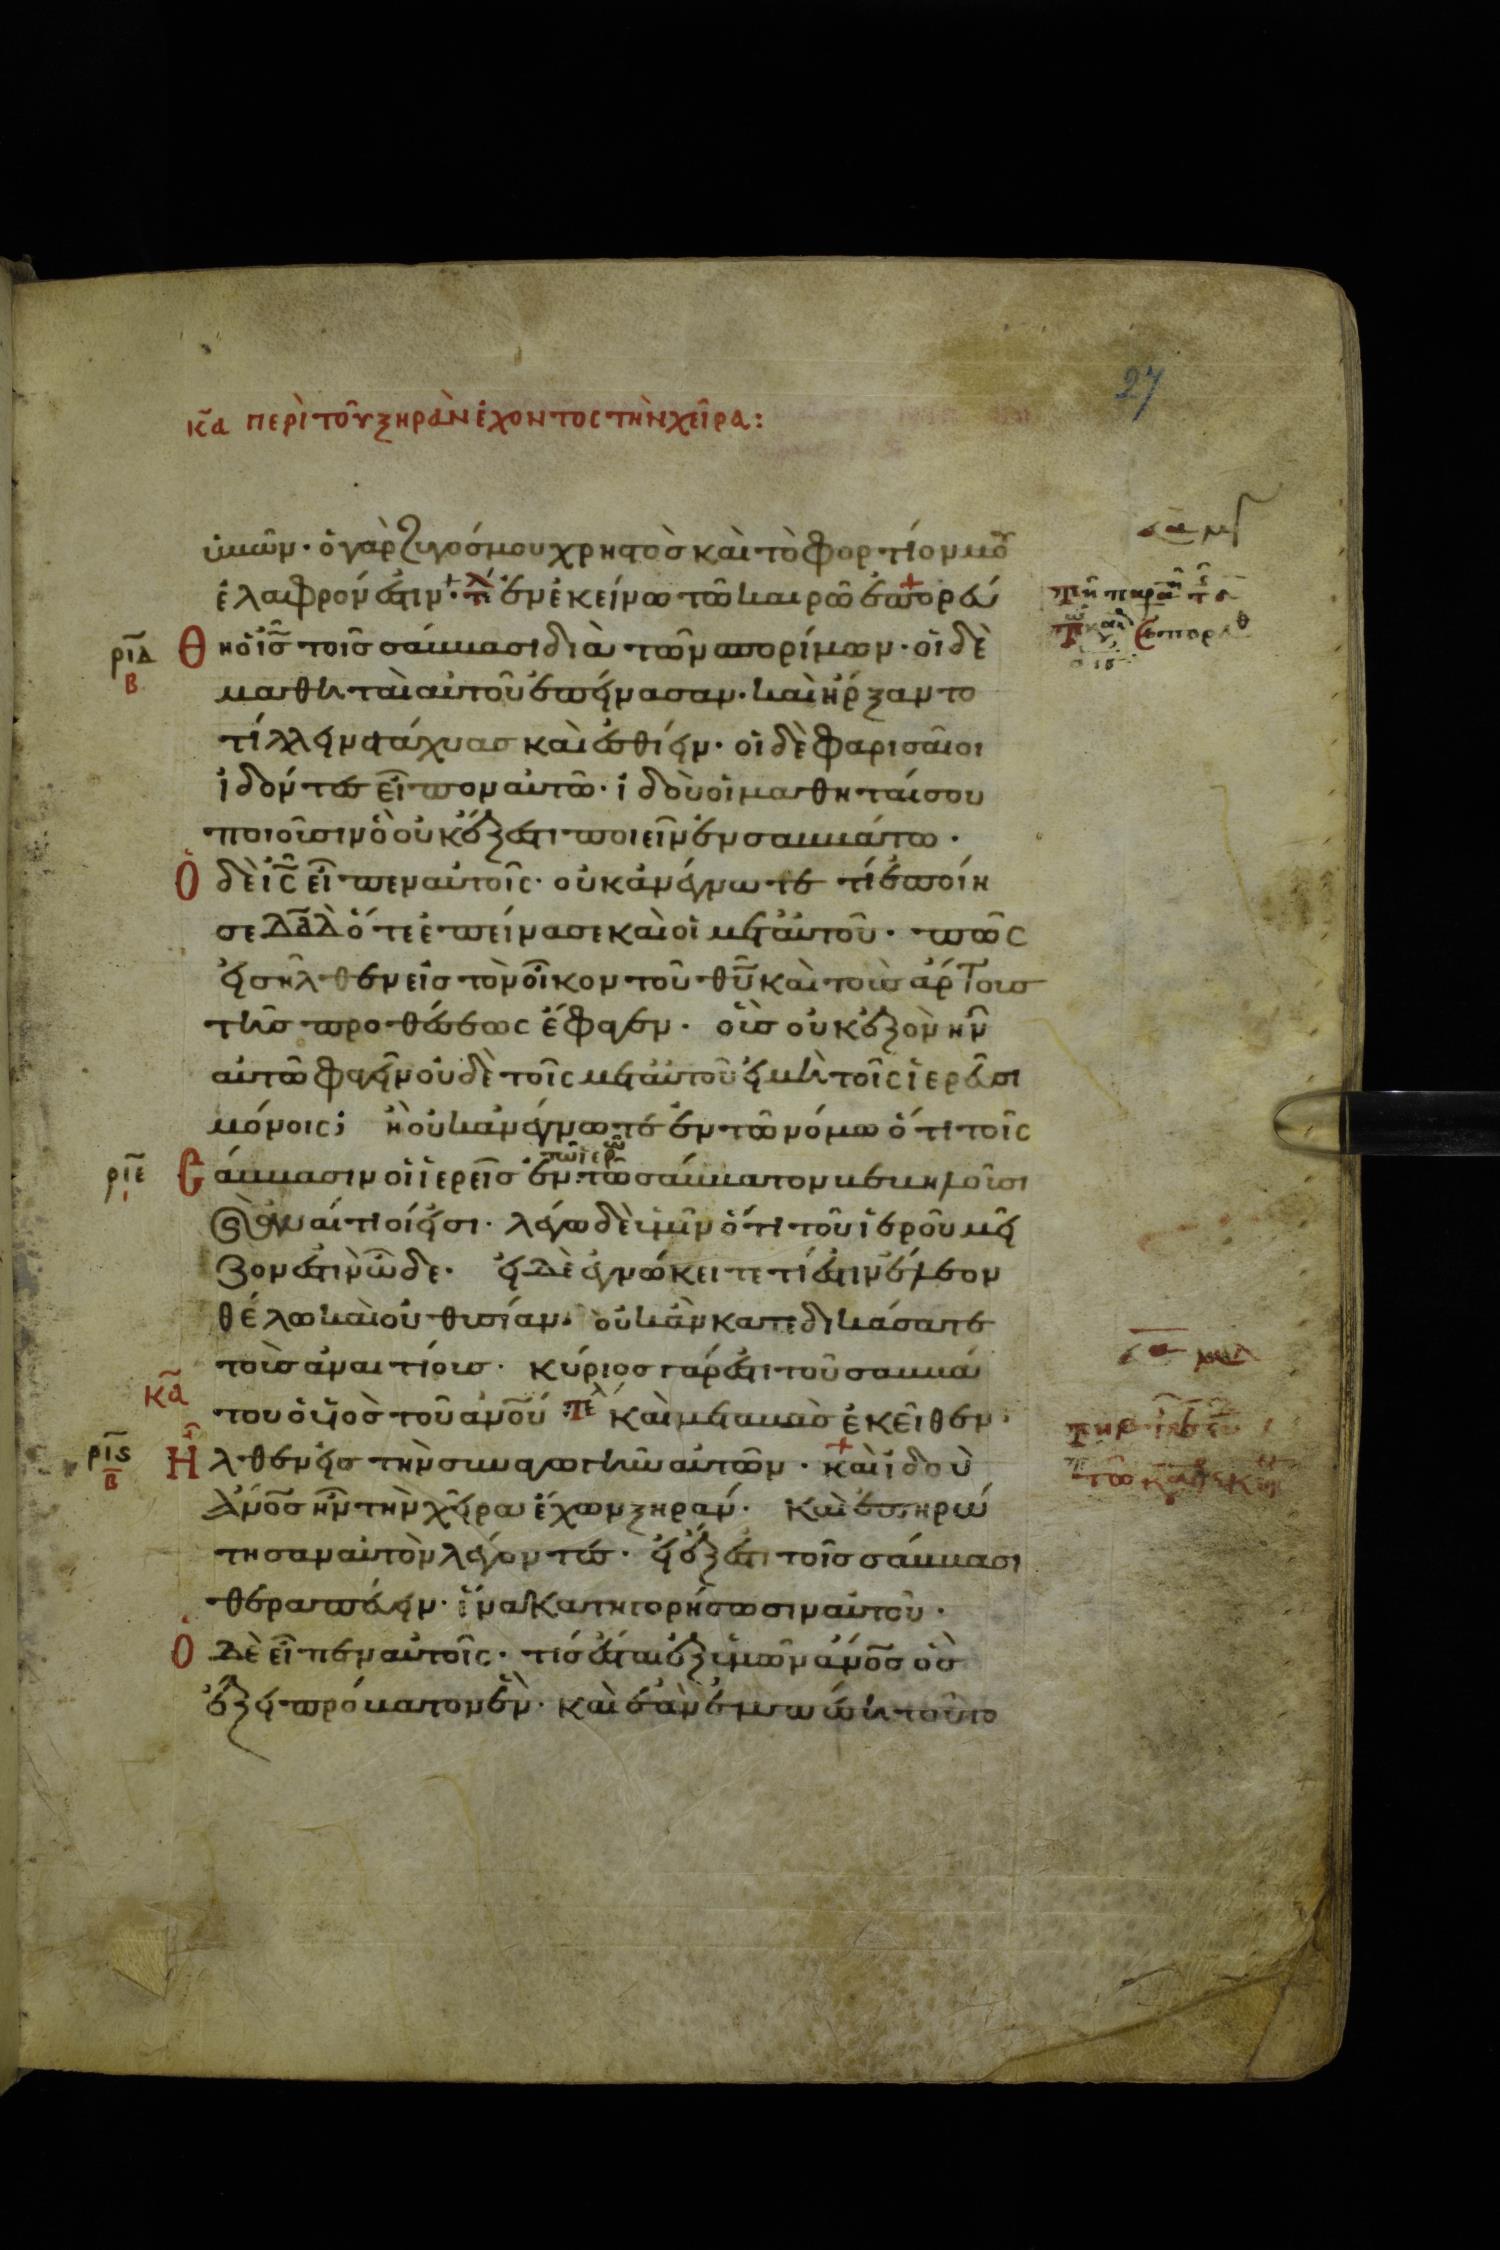 27
κ̄α περὶ τοῦ ξηρὰν ἔχοντος τὴν χεῖρα:
ὑμῶν· ὁ γὰρ ζυγός μου χρηστὸς καὶ τὸ φορτίον μου
ἐλαφρόν ἐστιν· τε ἐν ἐκείνω τῶ καιρῶ ἐπορεύ
ρ̄ῑδ β Θη ὁ ι̅ς̅ τοῖς σάββασι διὰ τῶν σπορίμων· οἱ δὲ
μαθηταὶ αὐτοῦ ἐπείνασαν· καὶ ἤρξαντο
τίλλειν στάχυας καὶ ἐσθίειν· οἱ δὲ φαρισαῖοι
ἰδόντες εἶπον αὐτῶ· ἰδοὺ οἱ μαθηταί σου
ποιοῦσιν ὃ οὐκ ἔξεστι ποιεῖν ἐν σαββάτω·
Ὁ δὲ ι̅ς̅ εἶπεν αὐτοῖς· οὐκ ἀνέγνωτε τί ἐποίη
σε δ̅α̅δ̅ ὅτε ἐπείνασε καὶ οἱ μετ αὐτοῦ· πῶς
εἰσῆλθεν εἰς τὸν οἶκον τοῦ θ̅υ̅ καὶ τοὺς ἄρτους
τῆς προθέσεως ἔφαγεν· οἷς οὐκ ἐξὸν ἦν
αὐτῶ φαγεῖν οὐδὲ τοῖς μετ αὐτοῦ εἰ μὴ τοῖς ἱερεῦσι
μόνοις; ἢ οὐκ ἀνέγνωτε ἐν τῶ νόμω ὅτι τοῖς
τῶ ἱερῶ
ρ̄ῑε ι Σάββασιν οἱ ἱερεῖς ἐν τῶ σάββατον βεβηλοῦσι
καὶ ἀναίτιοί εἰσι· λέγω δὲ ὑμῖν ὅτι τοῦ ἱεροῦ μεῖ
ζον ἐστὶν ὧδε· εἰ δὲ ἐγνώκειτε τί ἐστιν ἔλεον
θέλω καὶ οὐ θυσίαν· οὐκ ἂν κατεδικάσατε
τοὺς ἀναιτίους· κύριος γάρ ἐστι τοῦ σαββά
κ̄α του ὁ υἱὸς τοῦ α̅ν̅ο̅υ̅ τε καὶ μεταβὰς ἐκεῖθεν·
ρ̄ῑς β Ἦλθεν εἰς τὴν συναγωγὴν αὐτῶν· καὶ ἰδοὺ
α̅ν̅ο̅ς̅ ἦν τὴν χεῖρα ἔχων ξηράν· καὶ ἐπηρώ
τησαν αὐτὸν λέγοντες· εἰ ἔξεστι τοῖς σάββασι
θεραπεύειν· ἵνα κατηγορήσωσιν αὐτοῦ·
Ὁ δὲ εἶπεν αὐτοῖς· τίς ἔσται ἐξ ὑμῶν α̅ν̅ο̅ς̅ ὃς
ἕξει πρόβατον ἕν· καὶ ἐὰν ἐμπέση τοῦτο